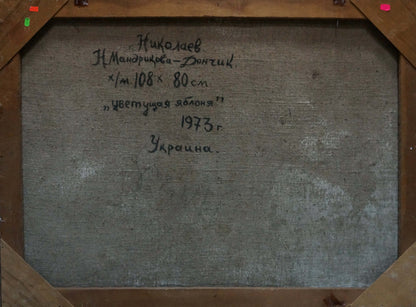 Николаев
Н Мандрикова-Дончик.
х/м 108 х 80 см
„цветущая яблоня”
1973 г.
Украина.